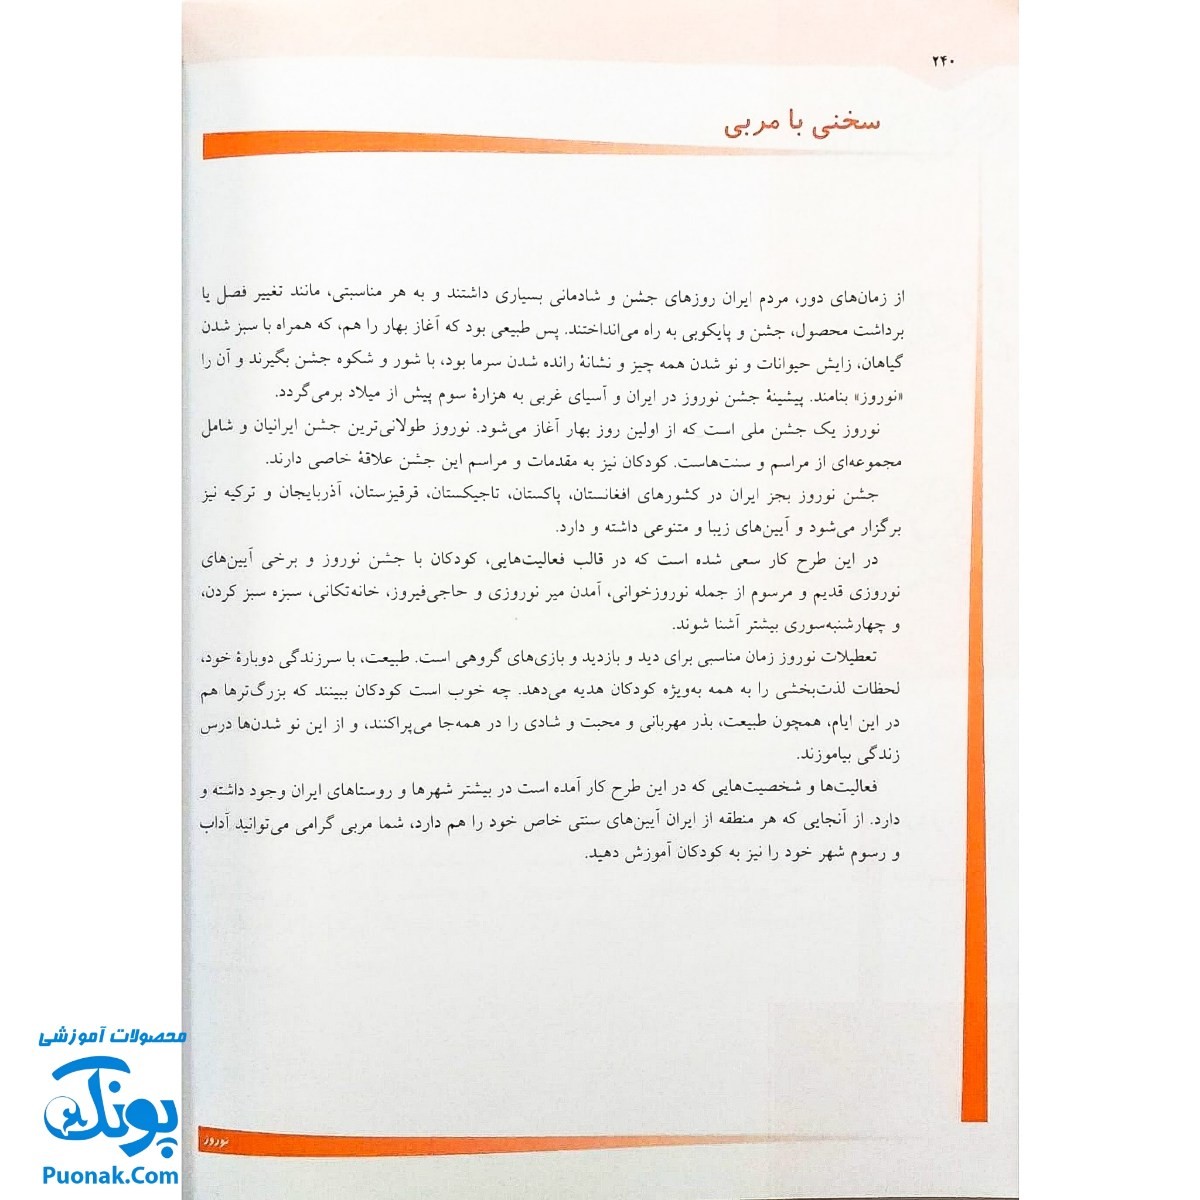 ۲۴۰
سخنی با مربی
از زمان‌های دور، مردم ایران روزهای جشن و شادمانی بسیاری داشتند و به هر مناسبتی، مانند تغییر فصل یا
برداشت محصول، جشن و پایکوبی به راه می‌انداختند. پس طبیعی بود که آغاز بهار را هم، که همراه با سبز شدن
گیاهان، زایش حیوانات و نو شدن همه چیز و نشانهٔ رانده شدن سرما بود، با شور و شکوه جشن بگیرند و آن را
«نوروز» بنامند. پیشینهٔ جشن نوروز در ایران و آسیای غربی به هزارهٔ سوم پیش از میلاد برمی‌گردد.
نوروز یک جشن ملی است که از اولین روز بهار آغاز می‌شود. نوروز طولانی‌ترین جشن ایرانیان و شامل
مجموعه‌ای از مراسم و سنت‌هاست. کودکان نیز به مقدمات و مراسم این جشن علاقهٔ خاصی دارند.
جشن نوروز بجز ایران در کشورهای افغانستان، پاکستان، تاجیکستان، قرقیزستان، آذربایجان و ترکیه نیز
برگزار می‌شود و آیین‌های زیبا و متنوعی داشته و دارد.
در این طرح کار سعی شده است که در قالب فعالیت‌هایی، کودکان با جشن نوروز و برخی آیین‌های
نوروزی قدیم و مرسوم از جمله نوروزخوانی، آمدن میر نوروزی و حاجی‌فیروز، خانه‌تکانی، سبزه سبز کردن،
و چهارشنبه‌سوری بیشتر آشنا شوند.
تعطیلات نوروز زمان مناسبی برای دید و بازدید و بازی‌های گروهی است. طبیعت، با سرزندگی دوبارهٔ خود،
لحظات لذت‌بخشی را به همه به‌ویژه کودکان هدیه می‌دهد. چه خوب است کودکان ببینند که بزرگ‌ترها هم
در این ایام، همچون طبیعت، بذر مهربانی و محبت و شادی را در همه‌جا می‌پراکنند، و از این نو شدن‌ها درس
زندگی بیاموزند.
فعالیت‌ها و شخصیت‌هایی که در این طرح کار آمده است در بیشتر شهرها و روستاهای ایران وجود داشته و
دارد. از آنجایی که هر منطقه از ایران آیین‌های سنتی خاص خود را هم دارد، شما مربی گرامی می‌توانید آداب
و رسوم شهر خود را نیز به کودکان آموزش دهید.
نوروز
محصولات آموزشی
پونک
Puonak.Com